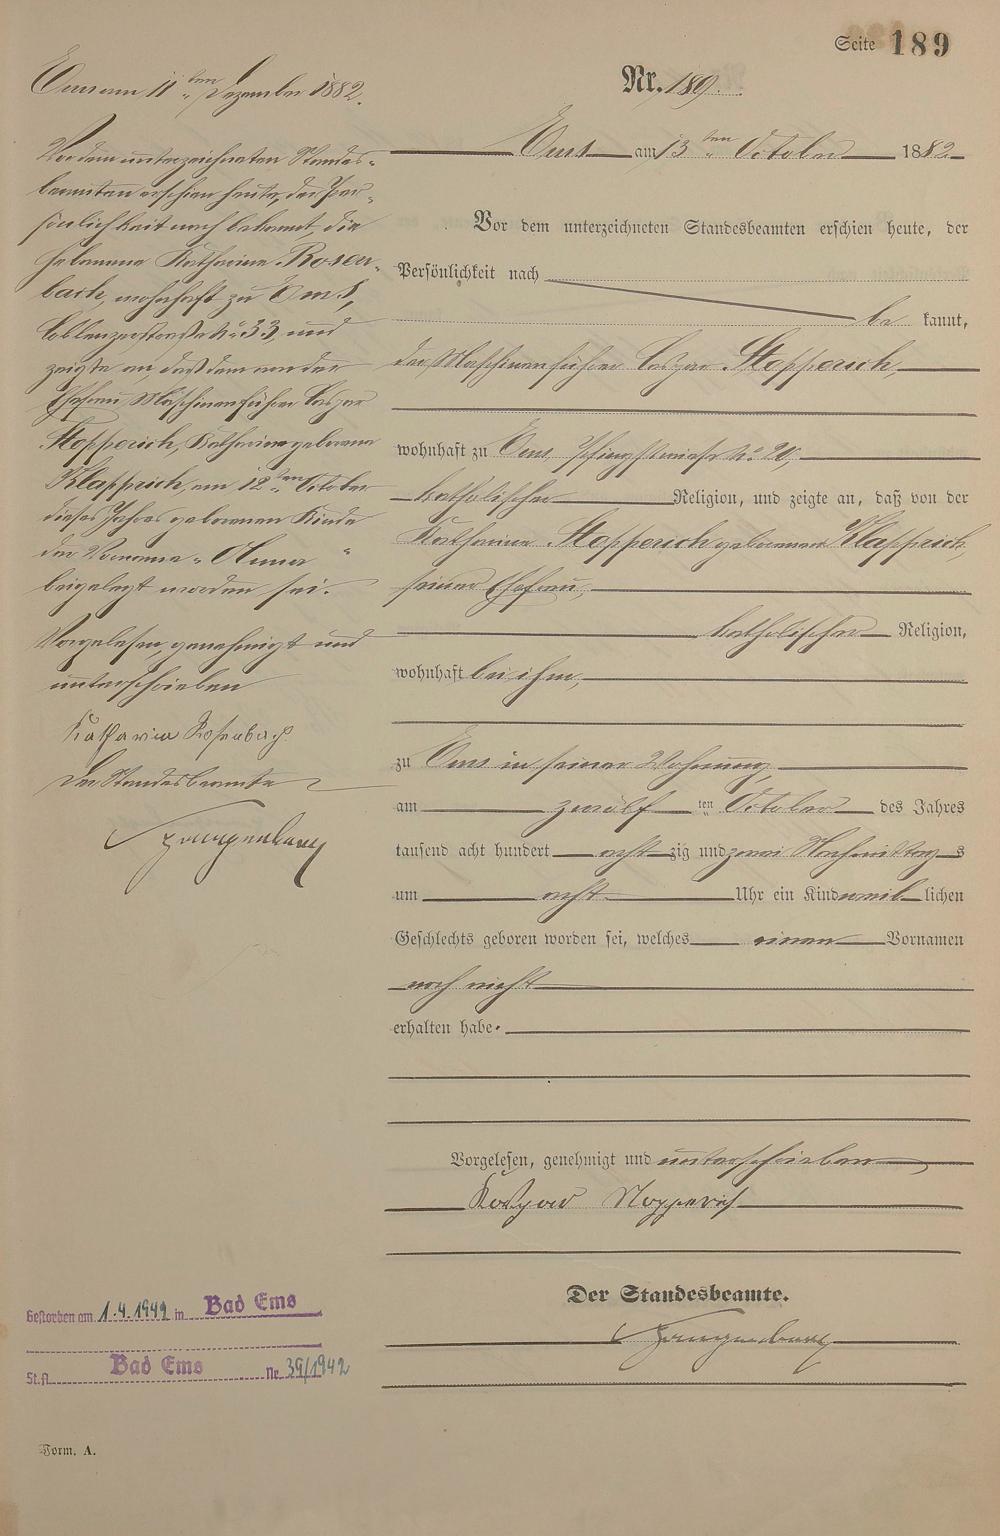 Seite 189
Nr. 189.
Ems am 13ten October 1882
Vor dem unterzeichneten Standesbeamten erschien heute, der
Persönlichkeit nach
bekannt,
der Maschinenführer Caspar Stopperich,
wohnhaft zu Ems, No. 20,
katholischer Religion, und zeigte an, daß von der
Katharina Stopperich geborenen Klapprich,
seiner Ehefrau,
katholischer Religion,
wohnhaft bei ihm,
zu Ems in seiner Wohnung,
am zwölf ten October des Jahres
tausend acht hundert acht zig und zwei Nachmittags
um acht Uhr ein Kind weiblichen
Geschlechts geboren worden sei, welches einen Vornamen
noch nicht
erhalten habe.
Vorgelesen, genehmigt und unterschrieben
Kaspar Stopperich
Der Standesbeamte.
Ems am 11ten Dezember 1882.
Vor dem unterzeichneten Standes-
beamten erschien heute, der Per-
sönlichkeit nach bekannt, die
Hebamme Katharina Rosen-
bach, wohnhaft zu Ems,
Coblenzerstraße No. 33, und
zeigte an, daß dem von der
Ehefrau Maschinenführer Caspar
Stopperich, Katharina geborene
Klapprich, am 12ten October
dieses Jahres geborenen Kinde
der Vorname „Anna"
beigelegt worden sei.
Vorgelesen, genehmigt und
unterschrieben
Katharina Rosenbach
Der Standesbeamte
Gestorben am 1.4.1942 in Bad Ems
St.A. Bad Ems Nr. 39/1942
Form. A.